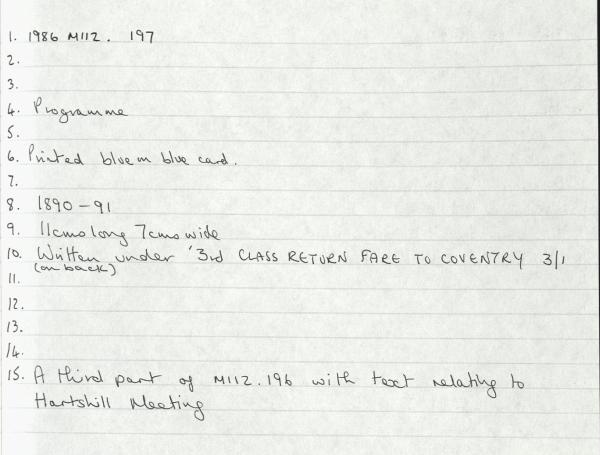 1. 1986 M112. 197
2.
3.
4. Programme
5.
6. Printed blue on blue card.
7.
8. 1890-91
9. 11cms long 7cms wide
10. Written under '3rd CLASS RETURN FARE TO COVENTRY 3/1
(on back)
11.
12.
13.
14.
15. A third part of M112.196 with text relating to
Hartshill Meeting